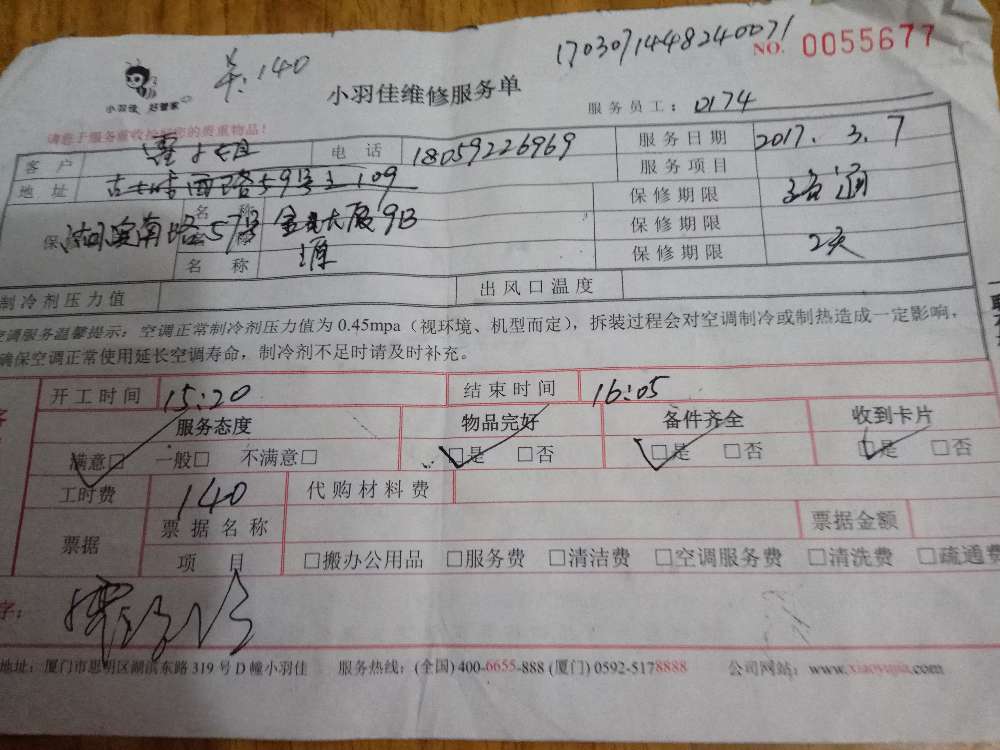 17030714482400071
NO. 0055677
140
小羽佳 好管家
小羽佳维修服务单
服务员工: 0174
请您于服务前收拾好您的贵重物品!
客户 电话 18059226969 服务日期 2017.3.7
地址 西路59号之109 服务项目
名称 保修期限 疏通
湖滨南路57号 金 大厦9B 保修期限
名称 保修期限 2天
制冷剂压力值 出风口温度
空调服务温馨提示: 空调正常制冷剂压力值为 0.45mpa (视环境、机型而定), 拆装过程会对空调制冷或制热造成一定影响,
确保空调正常使用延长空调寿命, 制冷剂不足时请及时补充。
开工时间 15:20 结束时间 16:05
服务态度 物品完好 备件齐全 收到卡片
满意□ 一般□ 不满意□ □是 □否 □是 □否 □是 □否
工时费 140 代购材料费
票据 票据名称 票据金额
项目 □搬办公用品 □服务费 □清洁费 □空调服务费 □清洗费 □疏通费
字:
地址: 厦门市思明区湖滨东路 319 号 D 幢小羽佳 服务热线: (全国) 400-6655-888 (厦门) 0592-5178888 公司网站: www.xiaoyujia.com